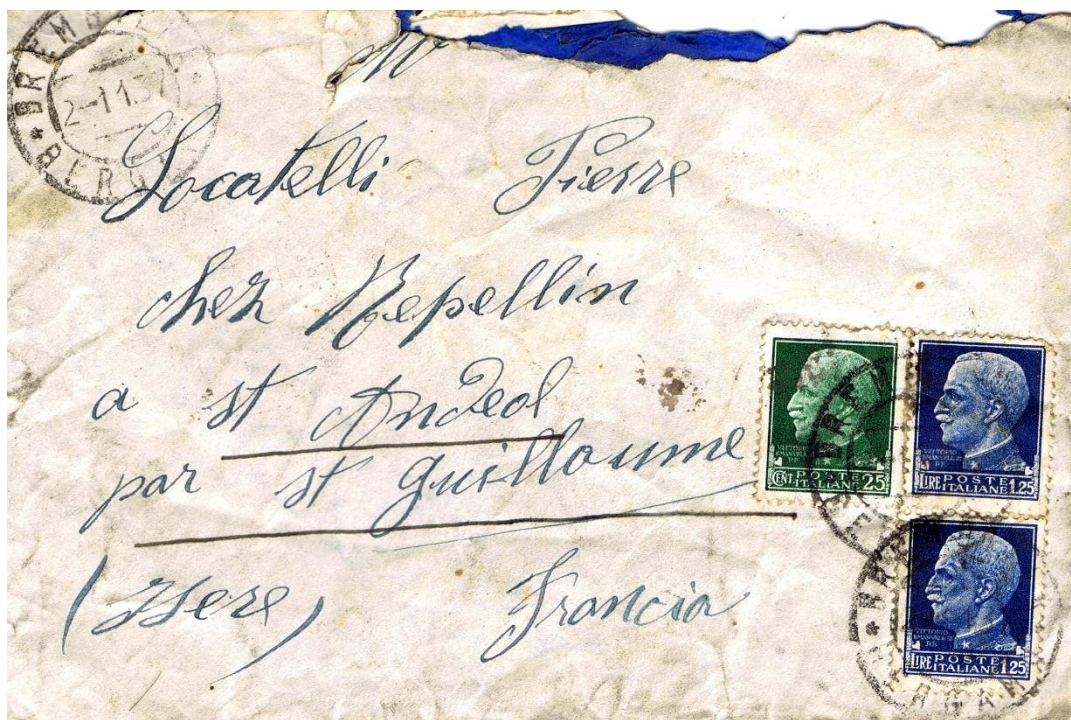 Mr
Locatelli Pierre
chez Repellin
a st Andeol
par st guillaume
(Isere) Francia
2-11.37
VITTORIO
EMANUELE III
RE
CENT. POSTE
ITALIANE 25
VITTORIO
EMANUELE III
RE
LIRE POSTE
ITALIANE 1.25
VITTORIO
EMANUELE III
RE
LIRE POSTE
ITALIANE 1.25
BERGAMO